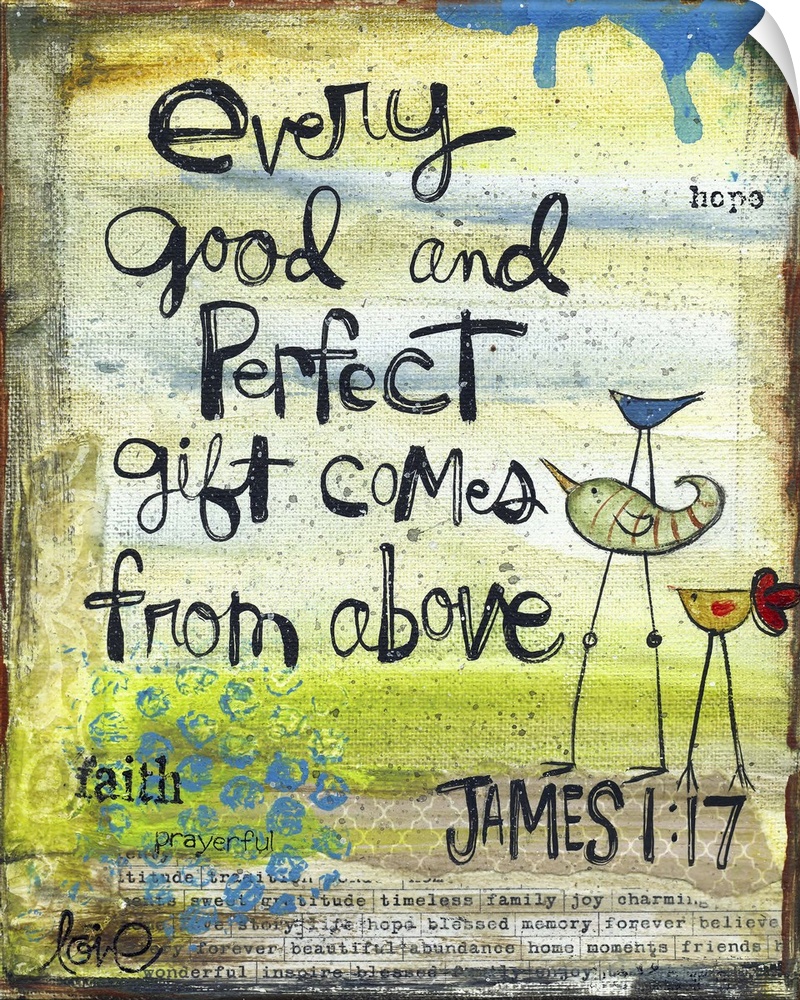 every
hope
good and
Perfect
gift comes
from above
faith
JAMES 1:17
prayerful
titude tradition
sweet gratitude timeless family joy charming
story life hope blessed memory forever believe
love
forever beautiful abundance home moments friends
wonderful inspire blessed family enjoy